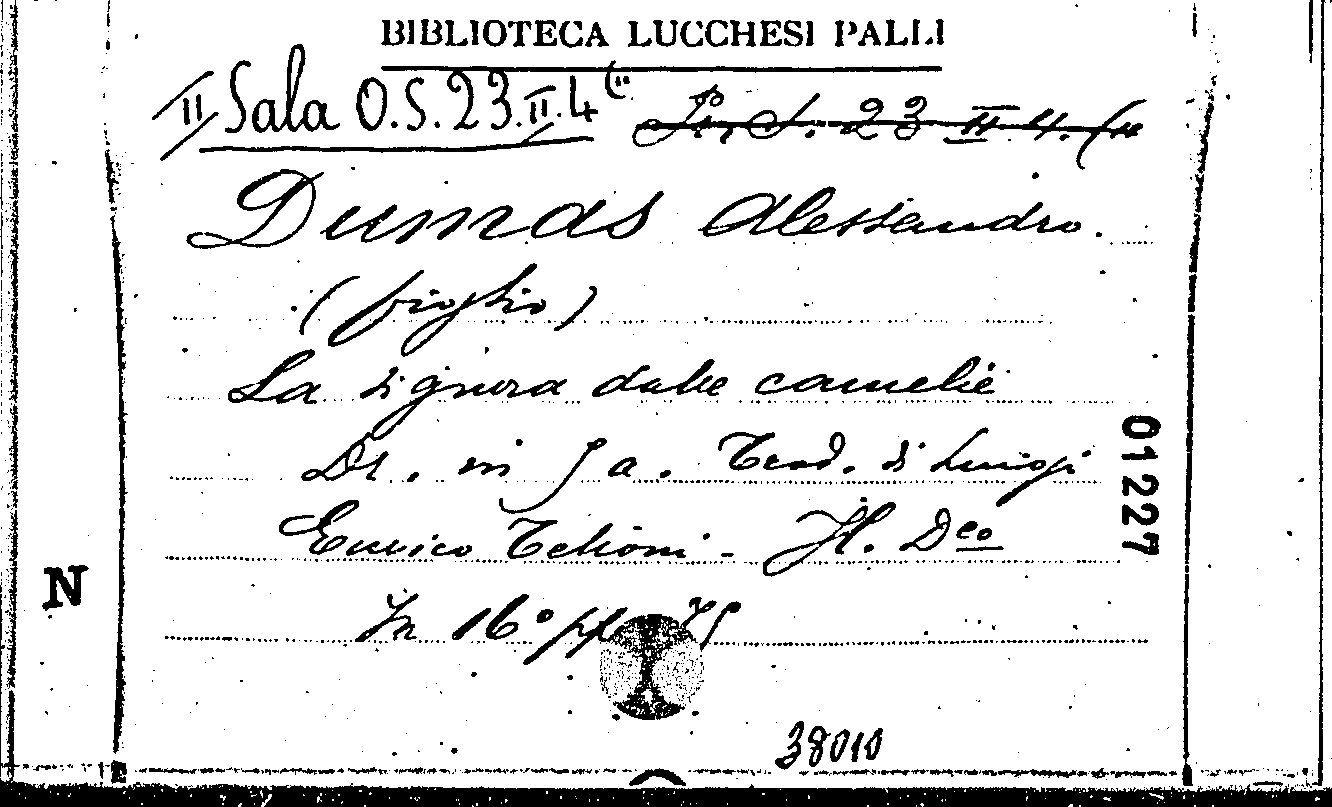 BIBLIOTECA LUCCHESI PALLI
II Sala O.S.23.II.4(11
S. 23 II 4. (11
Dumas Alessandro.
(figlio)
La signora dalle camelie
Dr. in 5 a. Trad. di Luigi
Enrico Tettoni - Il. Dco
In 16° pp. 75
01227
N
38010